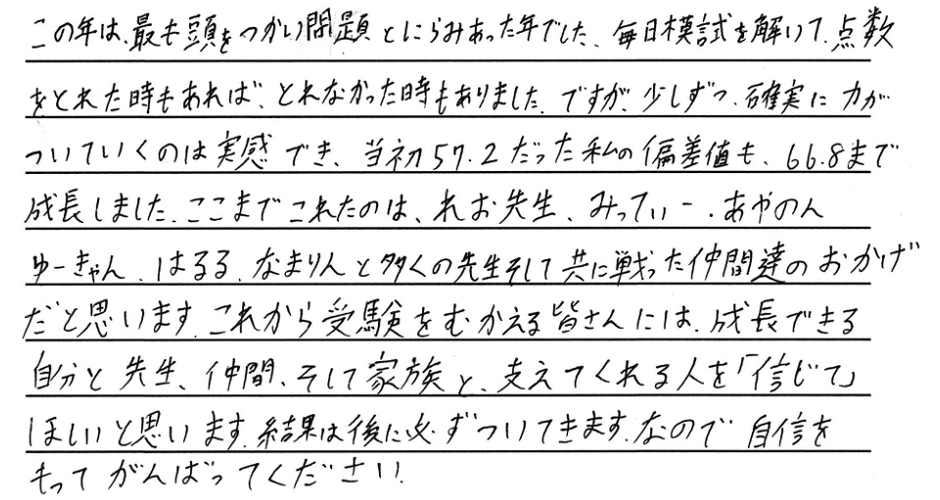 この年は、最も頭をつかい問題とにらみあった年でした。毎日模試を解いて、点数
をとれた時もあれば、とれなかった時もありました。ですが、少しずつ、確実に力が
ついていくのは実感でき、当初57.2だった私の偏差値も、66.8まで
成長しました。ここまでこれたのは、れお先生、みってぃー、あやのん
ゆーきゃん、はるる、なまりんと多くの先生そして共に戦った仲間達のおかげ
だと思います。これから受験をむかえる皆さんには、成長できる
自分と先生、仲間、そして家族と、支えてくれる人を「信じて」
ほしいと思います。結果は後に必ずついてきます。なので自信を
もってがんばってください!